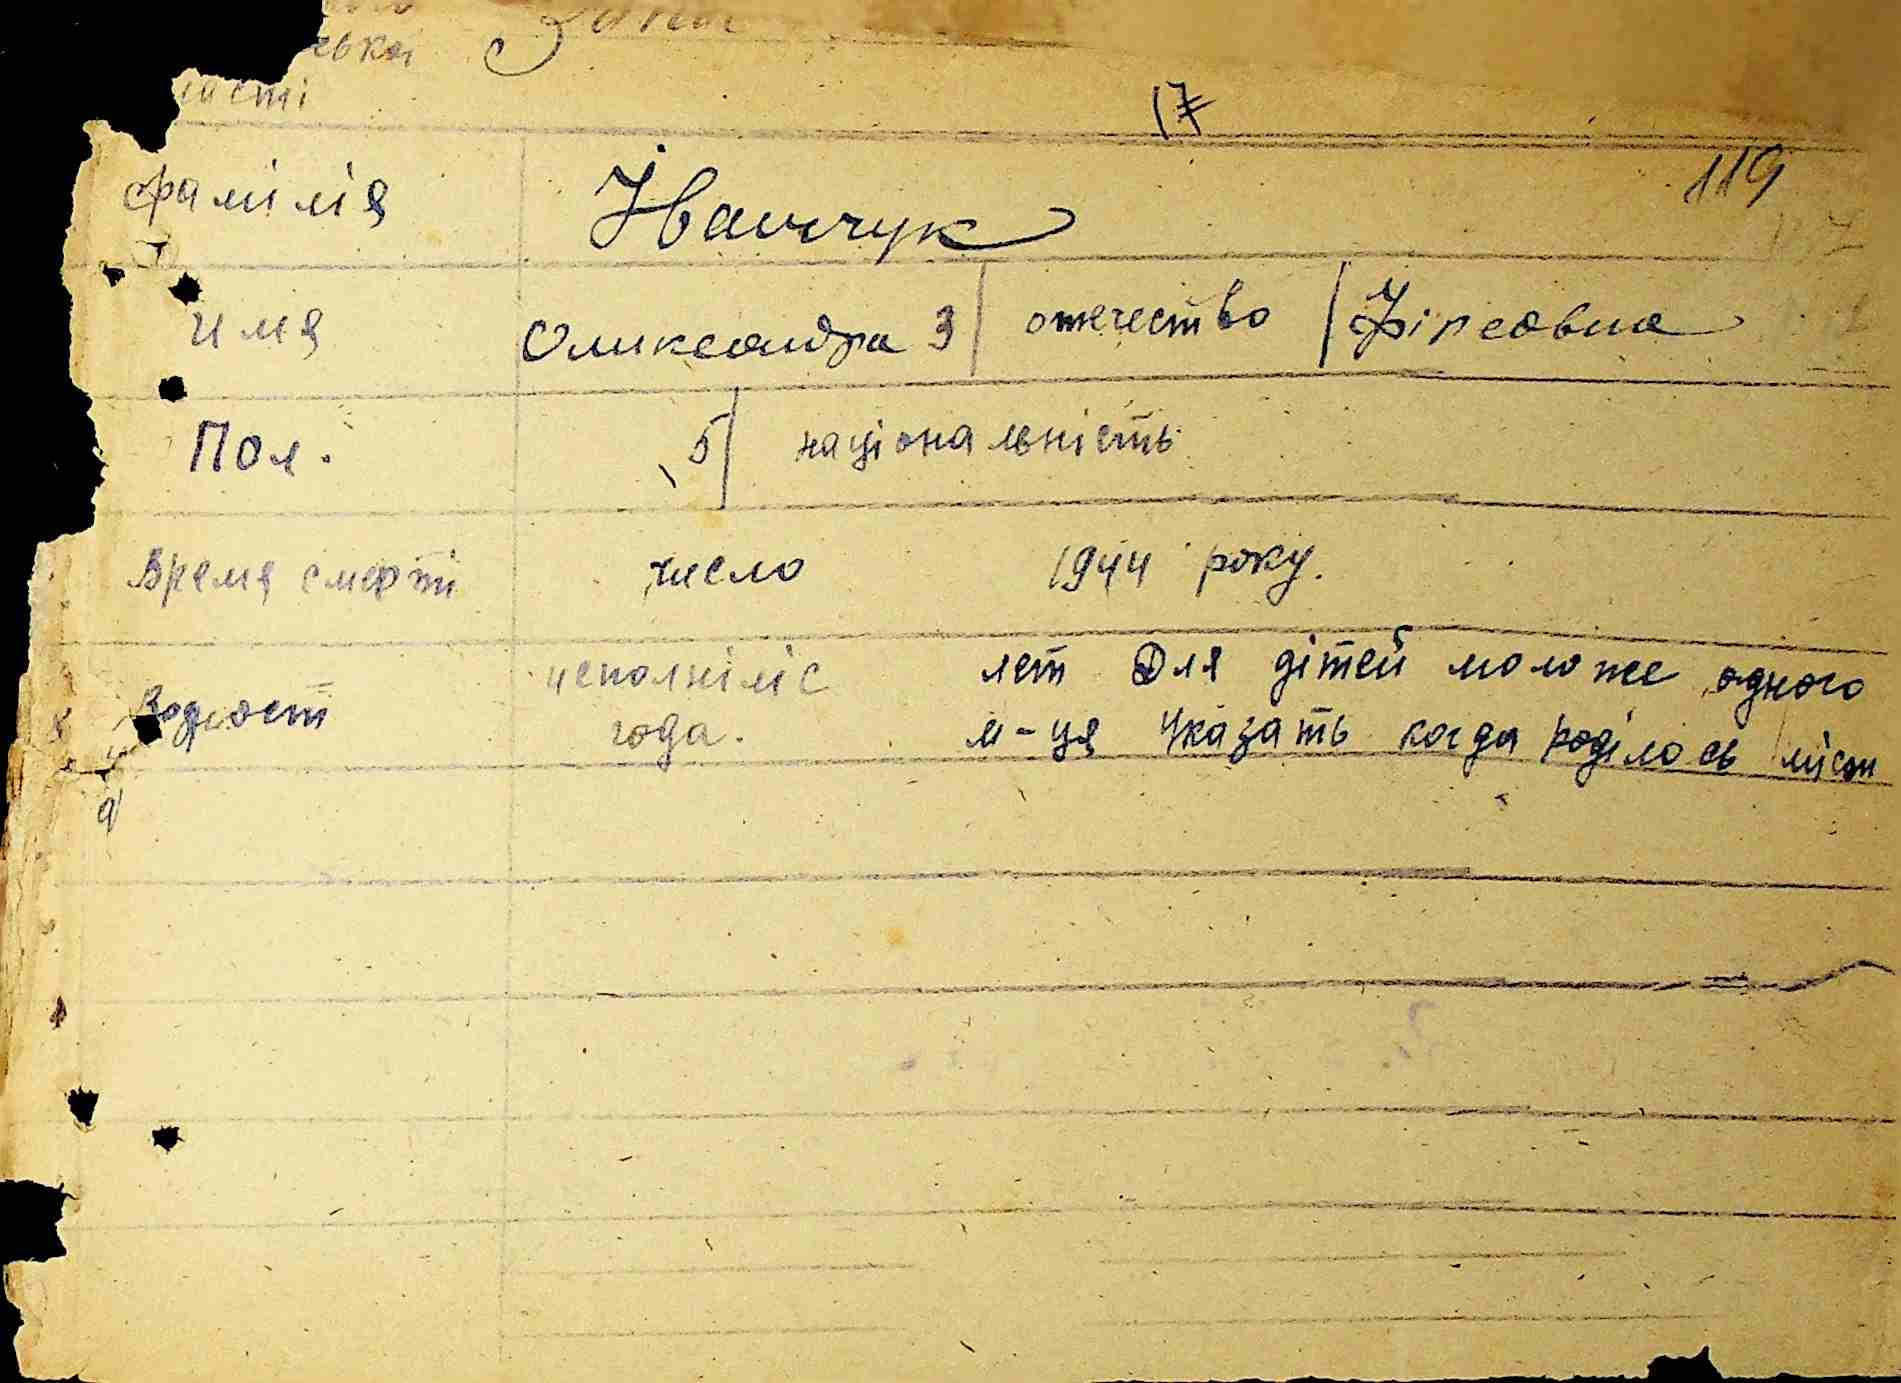 ської
ласті
17
119
фамілія Іванчук
имя Олександра 3 отечество Фірсовна
Пол. 5 національність
Время смерті число 1944 року.
Возрост исполніліс лет Для дітей моложе одного
года. м-ця Указать когда роділось міст